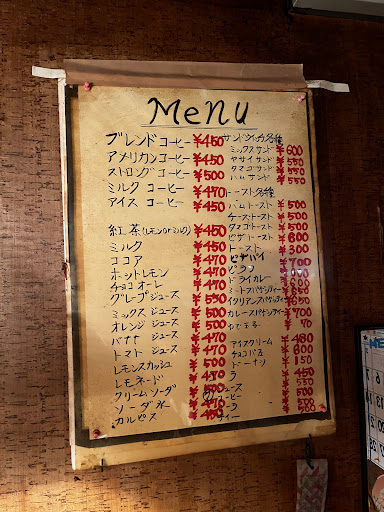 Menu
ブレンドコーヒー ¥450
アメリカンコーヒー ¥450
ストロングコーヒー ¥500
ミルクコーヒー ¥470
アイスコーヒー ¥450
紅茶(レモンorミルク) ¥450
ミルク ¥450
ココア ¥470
ホットレモン ¥470
チョコオーレ ¥500
グレープジュース ¥530
ミックスジュース ¥500
オレンジジュース ¥500
バナナジュース ¥470
トマトジュース ¥470
レモンスカッシュ ¥500
レモネード ¥470
クリームソーダ ¥500
ソーダ水 ¥470
カルピス ¥450
サンドウィッチ各種
ミックスサンド ¥600
ヤサイサンド ¥550
タマゴサンド ¥550
ハムサンド ¥550
トースト各種
ハムトースト ¥500
チーストースト ¥500
タマゴトースト ¥500
ピザトースト ¥600
トースト ¥300
ピザパイ ¥700
ピラフ
ドライカレー
ミートスパゲッティー ¥650
イタリアンスパゲッティー ¥650
カレースパゲッティー ¥700
ゆで玉子 ¥70
アイスクリーム ¥480
チョコパフェ ¥600
ドーナツ ¥150
¥450
ジュース
コーヒー